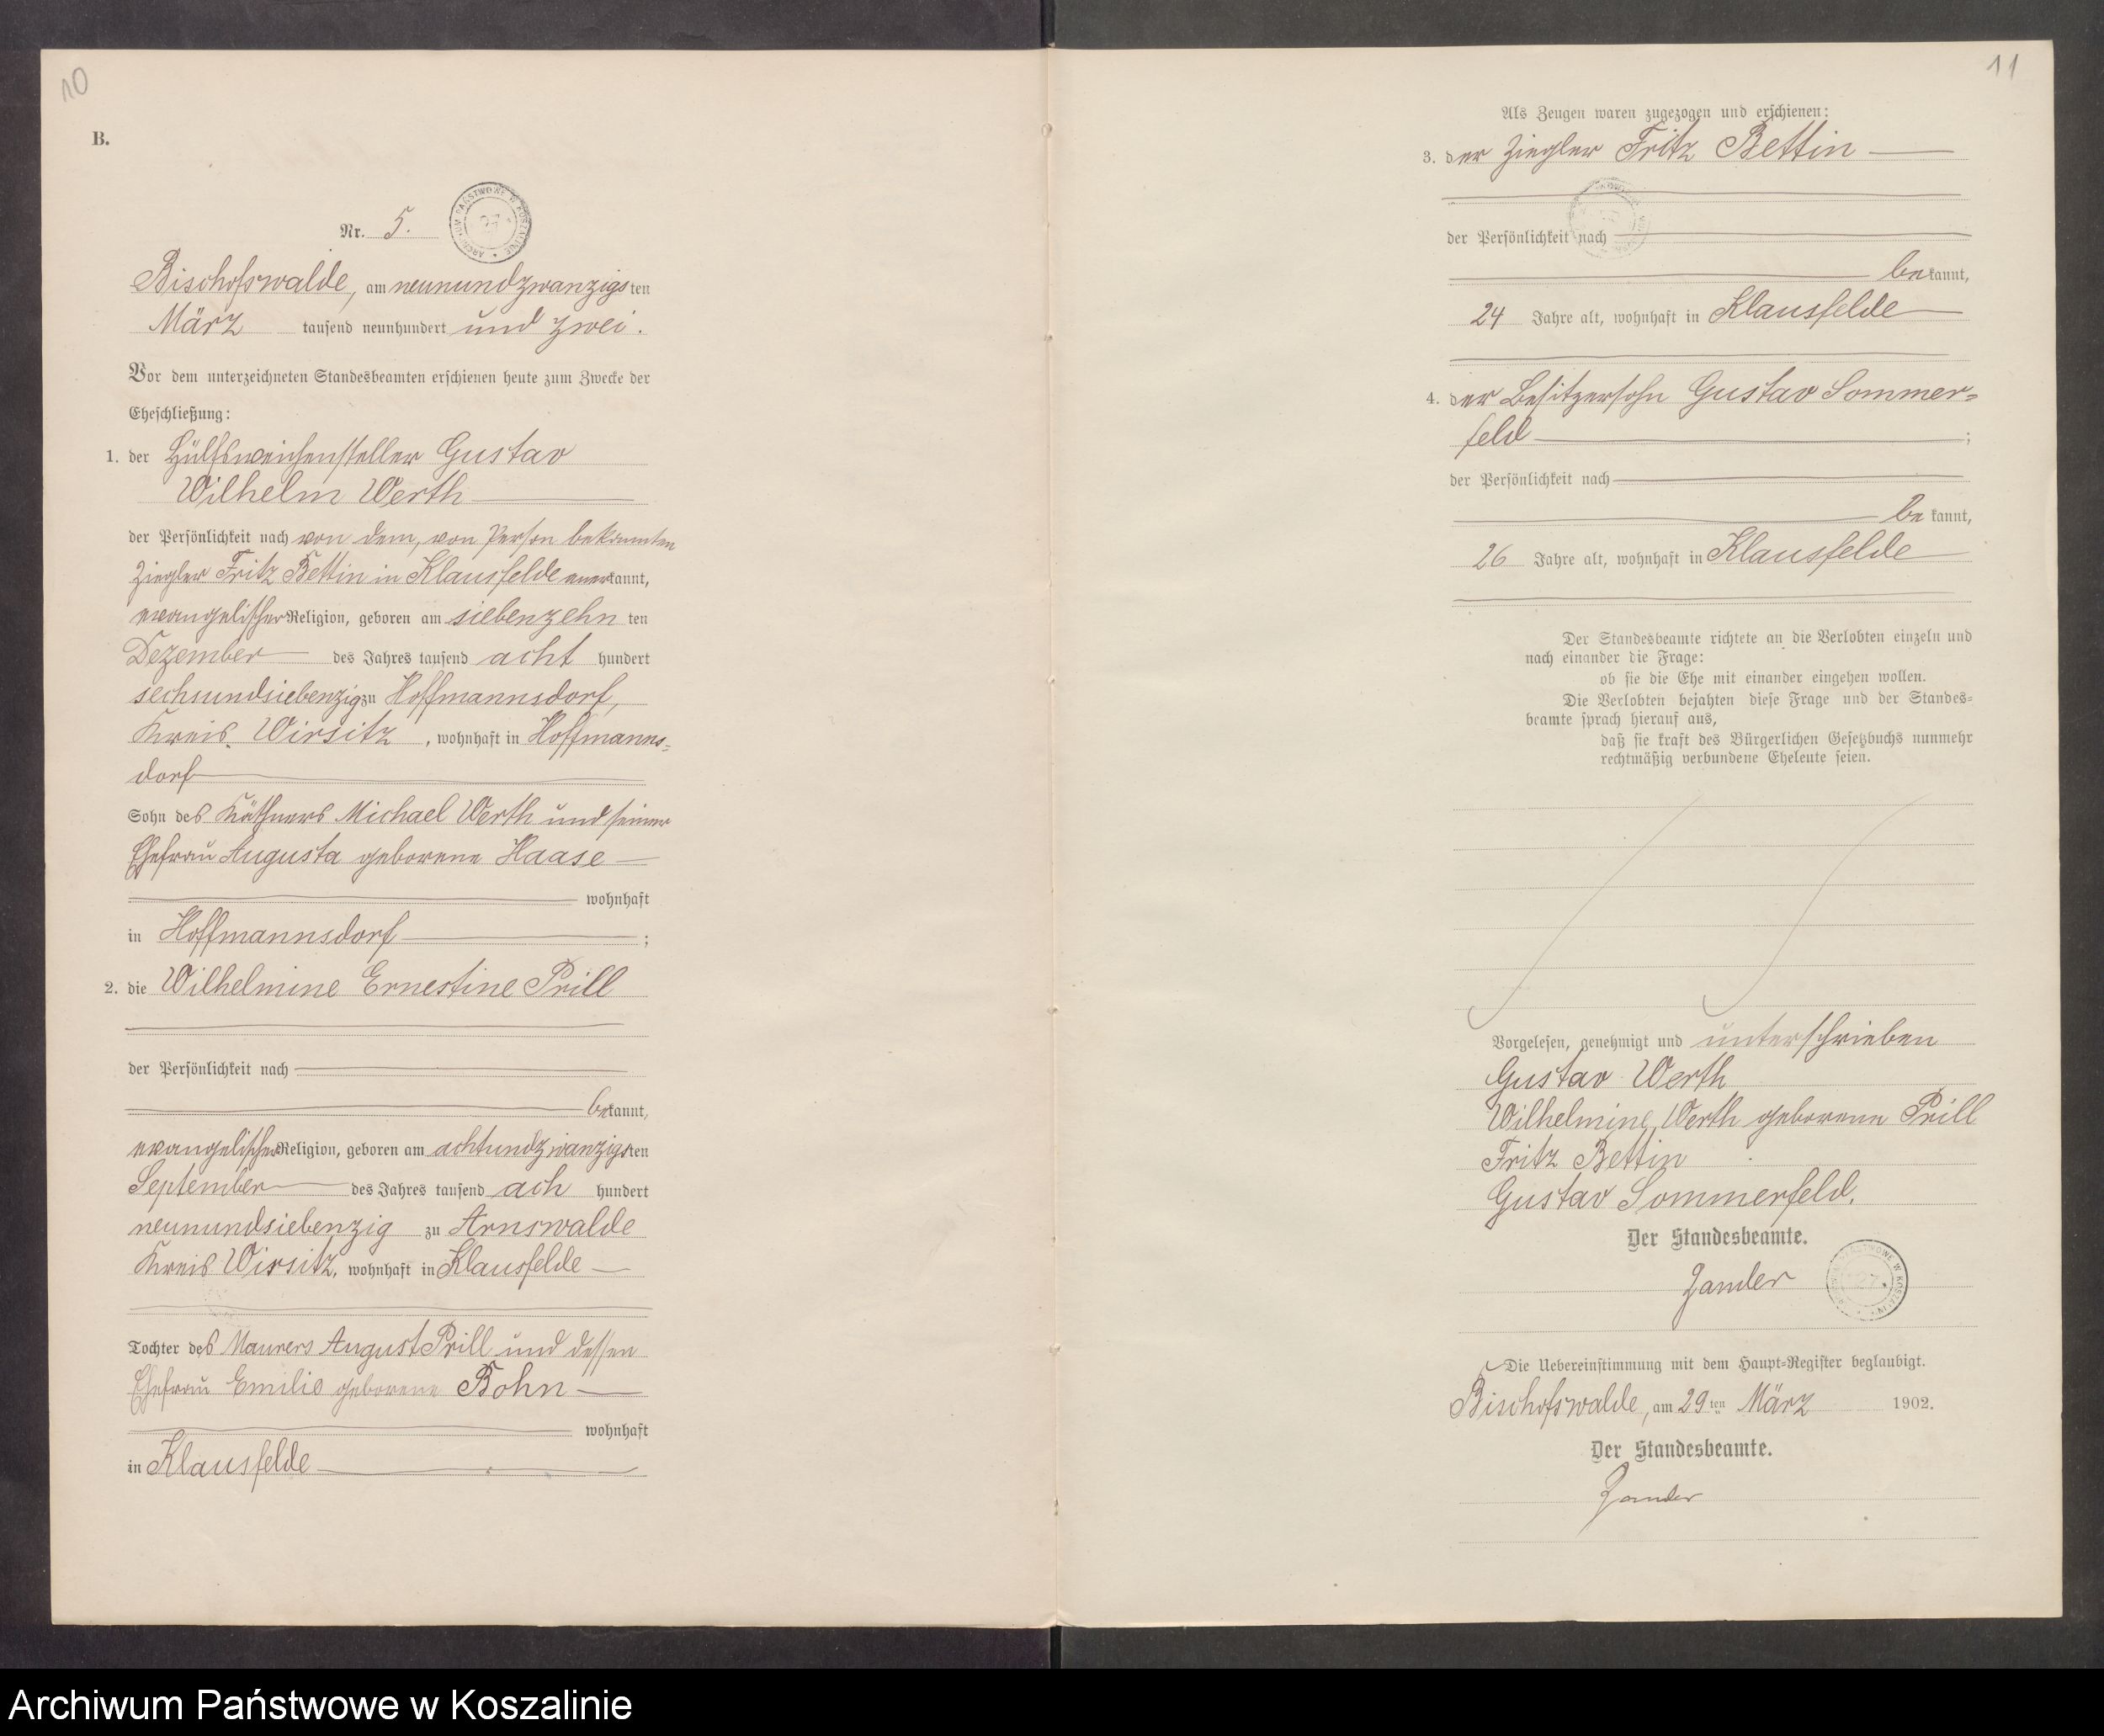 10
B.
Nr. 5.
Bischofswalde, am neunundzwanzigsten
März tausend neunhundert und zwei.
Vor dem unterzeichneten Standesbeamten erschienen heute zum Zwecke der
Eheschließung:
1. der Hülfsweichensteller Gustav
Wilhelm Werth
der Persönlichkeit nach von dem, von Person bekannten
Ziegler Fritz Bettin in Klausfelde anerkannt,
evangelischer Religion, geboren am siebenzehn ten
Dezember des Jahres tausend acht hundert
sechsundsiebenzig zu Hoffmannsdorf,
Kreis Wirsitz, wohnhaft in Hoffmanns=
dorf
Sohn des Käthners Michael Werth und seiner
Ehefrau Augusta geborene Haase
wohnhaft
in Hoffmannsdorf ;
2. die Wilhelmine Ernestine Prill
der Persönlichkeit nach
bekannt,
evangelischer Religion, geboren am achtundzwanzigsten
September des Jahres tausend ach hundert
neunundsiebenzig zu Arnswalde
Kreis Wirsitz, wohnhaft in Klausfelde
Tochter des Maurers August Prill und dessen
Ehefrau Emilie geborene Bohn
wohnhaft
in Klausfelde
11
Als Zeugen waren zugezogen und erschienen:
3. der Ziegler Fritz Bettin
der Persönlichkeit nach
bekannt,
24 Jahre alt, wohnhaft in Klausfelde
4. der Besitzersohn Gustav Sommer=
feld ;
der Persönlichkeit nach
bekannt,
26 Jahre alt, wohnhaft in Klausfelde
Der Standesbeamte richtete an die Verlobten einzeln und
nach einander die Frage:
ob sie die Ehe mit einander eingehen wollen.
Die Verlobten bejahten diese Frage und der Standes=
beamte sprach hierauf aus,
daß sie kraft des Bürgerlichen Gesetzbuchs nunmehr
rechtmäßig verbundene Eheleute seien.
Vorgelesen, genehmigt und unterschrieben
Gustav Werth
Wilhelmine Werth geborene Prill
Fritz Bettin
Gustav Sommerfeld.
Der Standesbeamte.
Zander
Die Uebereinstimmung mit dem Haupt=Register beglaubigt.
Bischofswalde, am 29ten März 1902.
Der Standesbeamte.
Zander
Archiwum Państwowe w Koszalinie